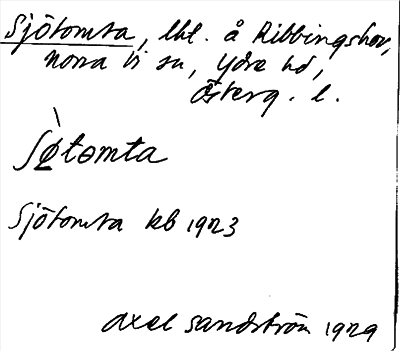 Sjötomta, lht. å Ribbingshov,
Norra Vi sn, Ydre hd,
Österg. l.
Sø̀tomta
Sjötomta kb 1923
Axel Sandström 1929